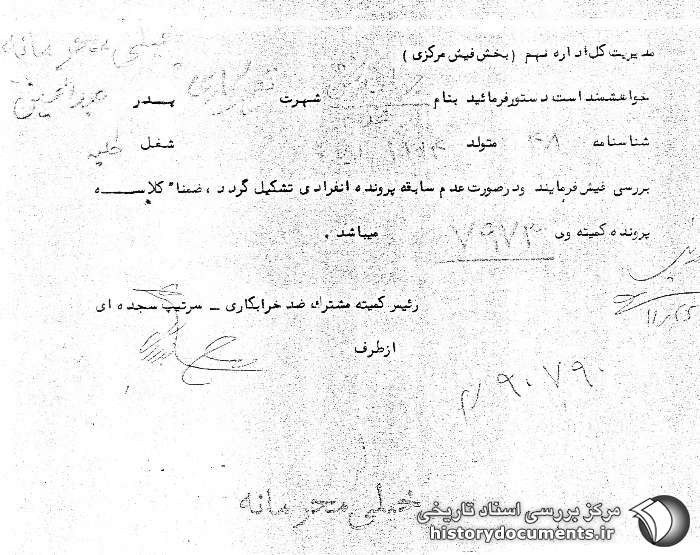 خیلی محرمانه
مدیریت کل اداره نهم (بخش فیش مرکزی)
خواهشمند است دستور فرمائید بنام شهرت پدر عبدالحسین
شناسنامه ۴۸ متولد شغل
بررسی فیش فرمایند و در صورت عدم سابقه پرونده انفرادی تشکیل گردد، ضمنا" کلاسه
پرونده کمیته وی ۷۹۷۳ میباشد.
رئیس کمیته مشترک ضد خرابکاری - سرتیپ سجده ای
از طرف
۹۰۷۹۰
خیلی محرمانه
مرکز بررسی اسناد تاریخی
historydocuments.ir